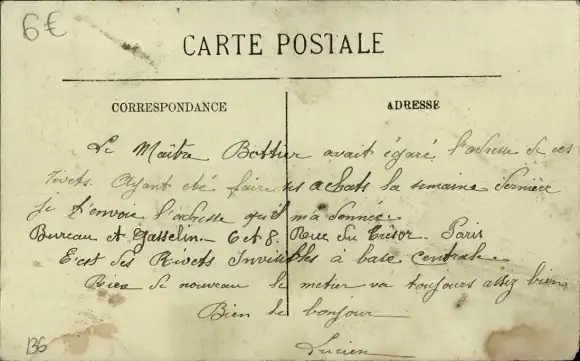 6€
CARTE POSTALE
CORRESPONDANCE
ADRESSE
Le Maître Bottier avait égaré l'adresse de ces
rivets. Ayant été faire ses achats la semaine dernière
je t'envoie l'adresse qu'il m'a donnée.
Bureau et Gasselin. 6 et 8. Rue du Trésor. Paris
C'est des Rivets Invisibles à base centrale.
Rien de nouveau le metier va toujours assez bien
Bien le bonjour
Lucien
136